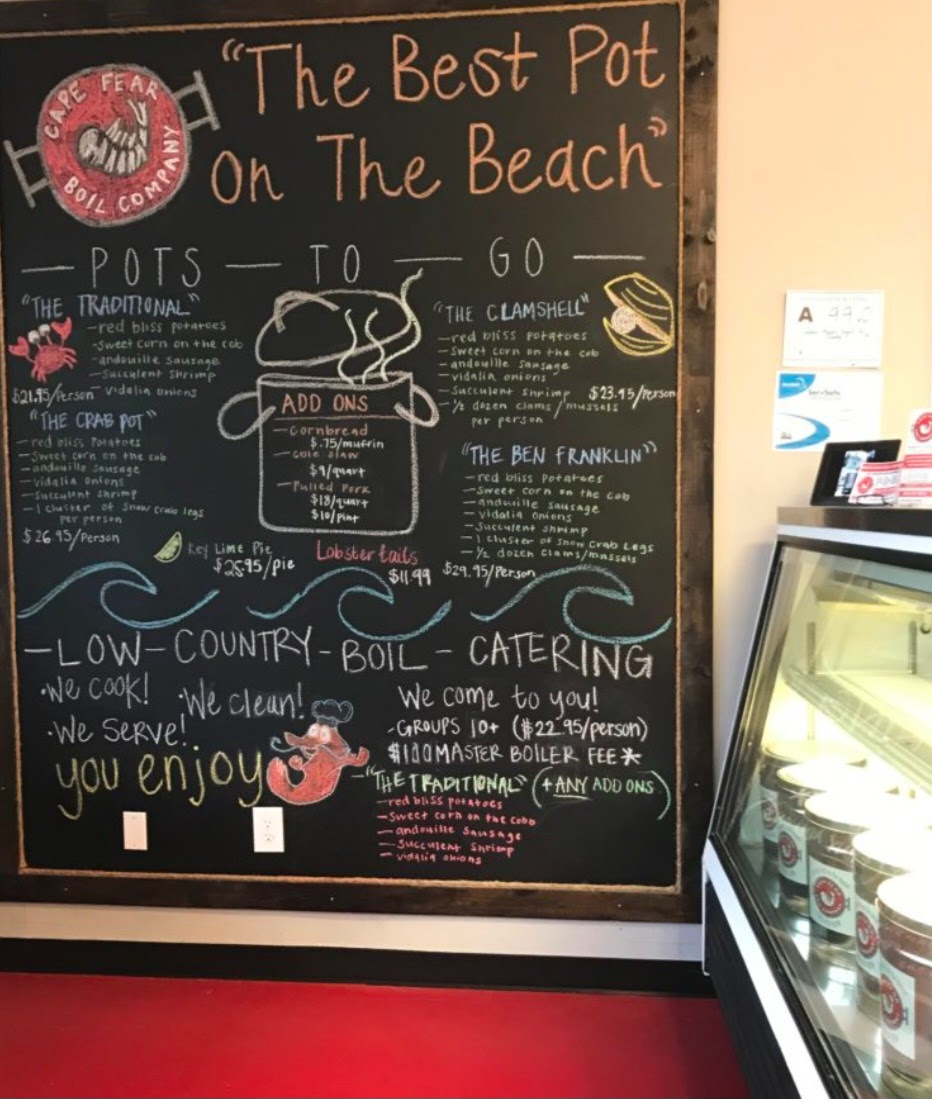 CAPE FEAR
BOIL COMPANY
"The Best Pot
on The Beach"
— POTS — TO — GO —
"THE TRADITIONAL"
- red bliss potatoes
- sweet corn on the cob
- andouille sausage
- succulent shrimp
- vidalia onions
$21.95/Person
"THE CRAB POT"
- red bliss potatoes
- sweet corn on the cob
- andouille sausage
- vidalia onions
- succulent shrimp
- 1 cluster of snow crab legs
per person
$26.95/Person
ADD ONS
- Cornbread
$.75/muffin
- cole slaw
$9/quart
- Pulled Pork
$18/quart
$10/pint
Key Lime Pie
$25.95/pie
Lobster tails
$11.99
"THE CLAMSHELL"
- red bliss potatoes
- sweet corn on the cob
- andouille sausage
- vidalia onions
- succulent shrimp $23.95/Person
- 1/2 dozen clams/mussels
per person
"THE BEN FRANKLIN"
- red bliss potatoes
- sweet corn on the cob
- andouille sausage
- vidalia onions
- succulent shrimp
- 1 cluster of snow crab legs
- 1/2 dozen clams/mussels
$29.95/Person
- LOW - COUNTRY - BOIL - CATERING
·We cook!
·We clean!
·We Serve!
you enjoy
We come to you!
-GROUPS 10+ ($22.95/person)
$100 MASTER BOILER FEE*
- "THE TRADITIONAL" (+ ANY ADD ONS)
- red bliss potatoes
- sweet corn on the cobb
- andouille sausage
- succulent shrimp
- vidalia onions
A 99.0
ServSafe